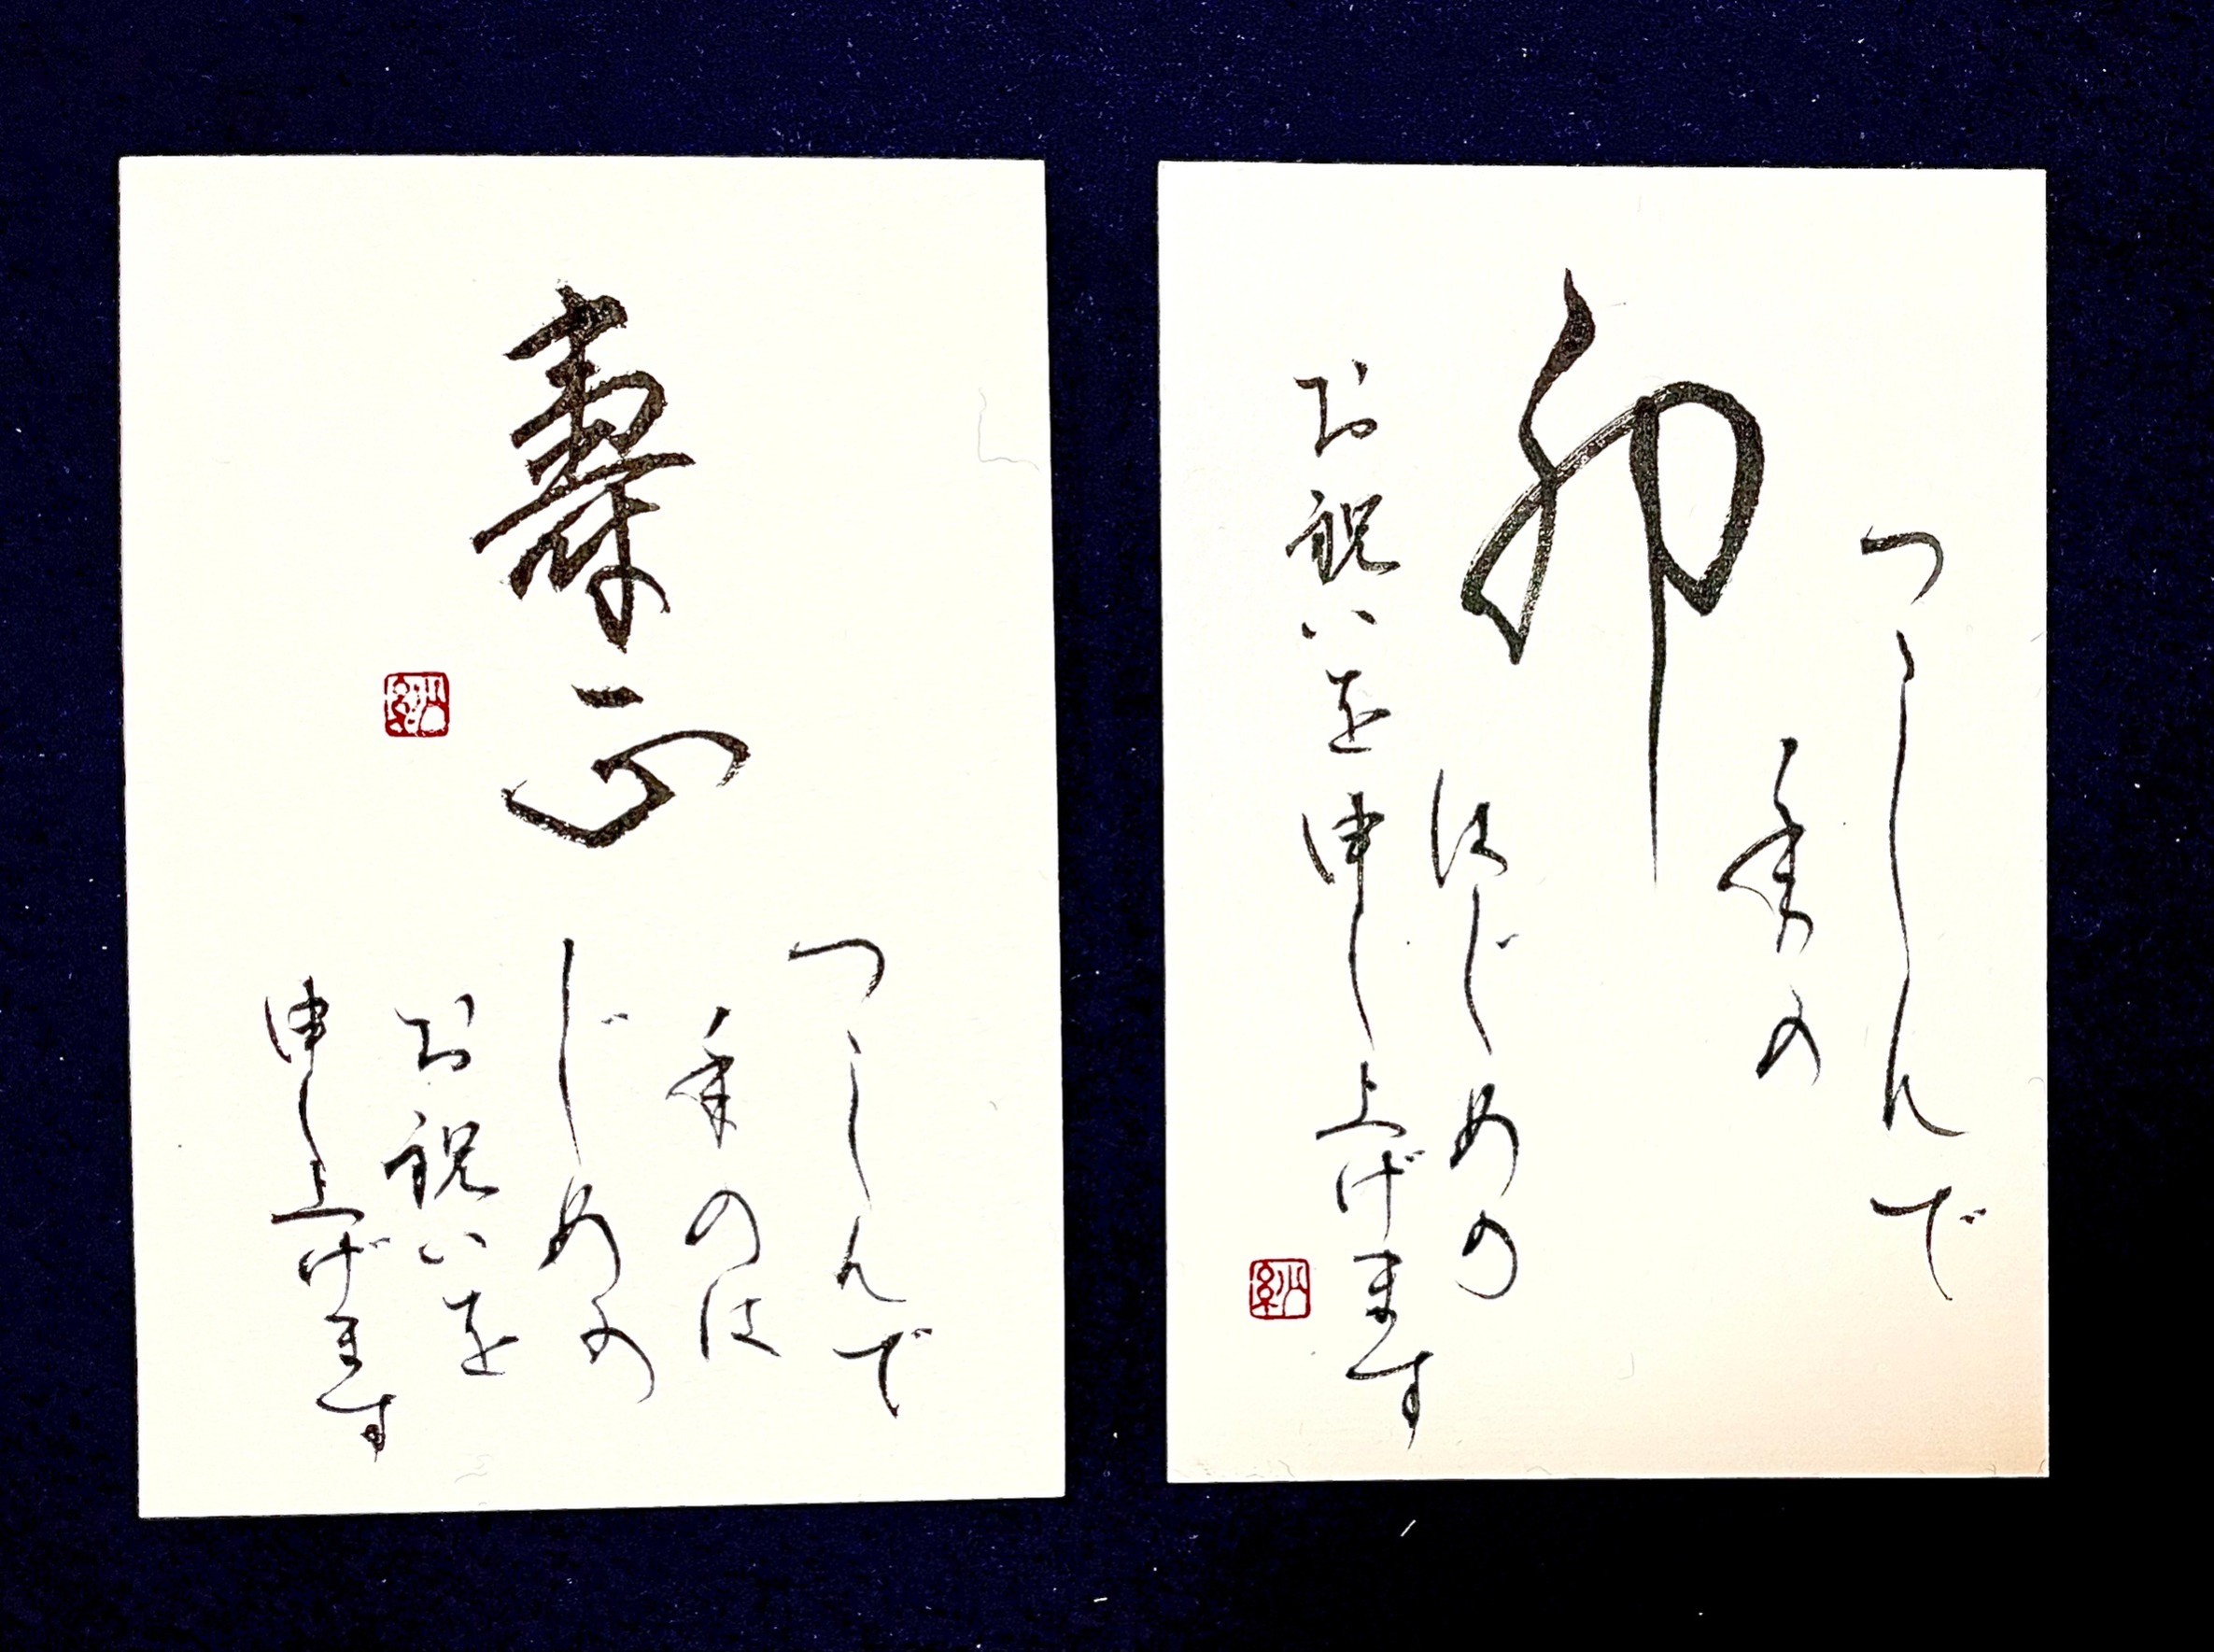 壽正
つゝしんで
年のは
じめの
お祝いを
申し上げます
卯
つゝしんで
年の
はじめの
お祝いを申し上げます